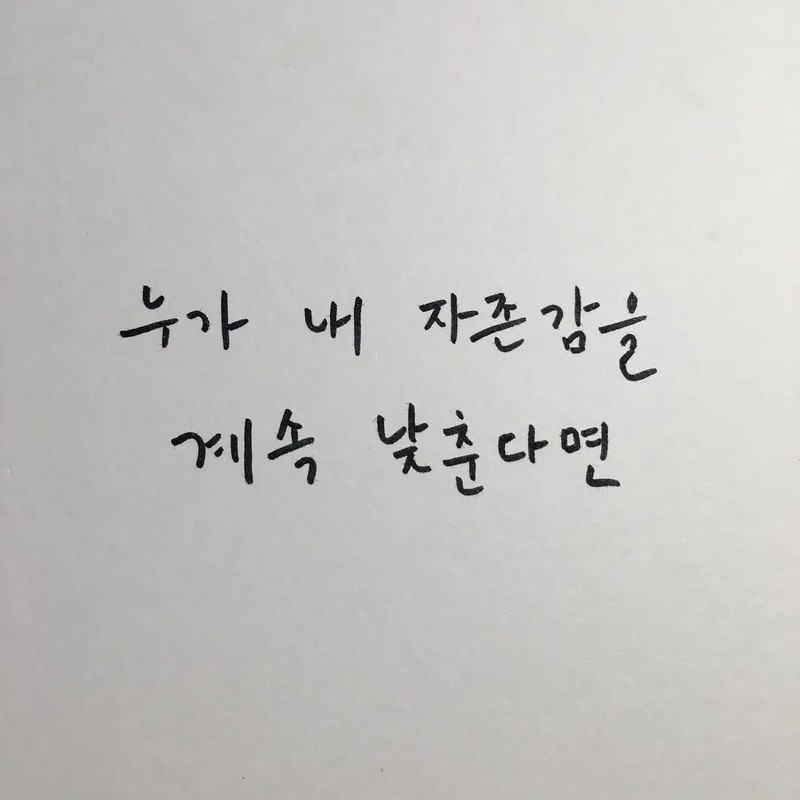 누가 내 자존감을
계속 낮춘다면